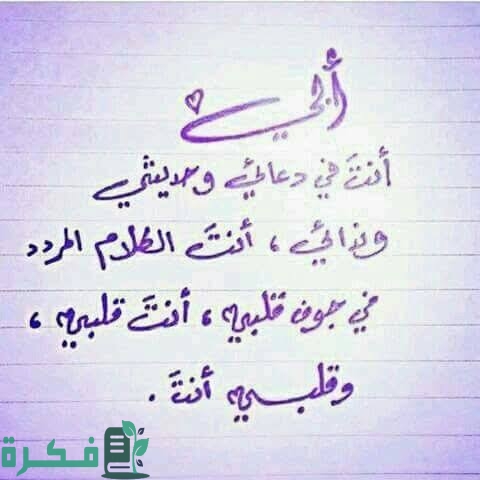 أبي
أنتَ في دعائي وحديثي
وندائي ، أنتَ الكلام المردد
في جوف قلبي ، أنتَ قلبي ،
وقلبي أنتَ .
فكرة